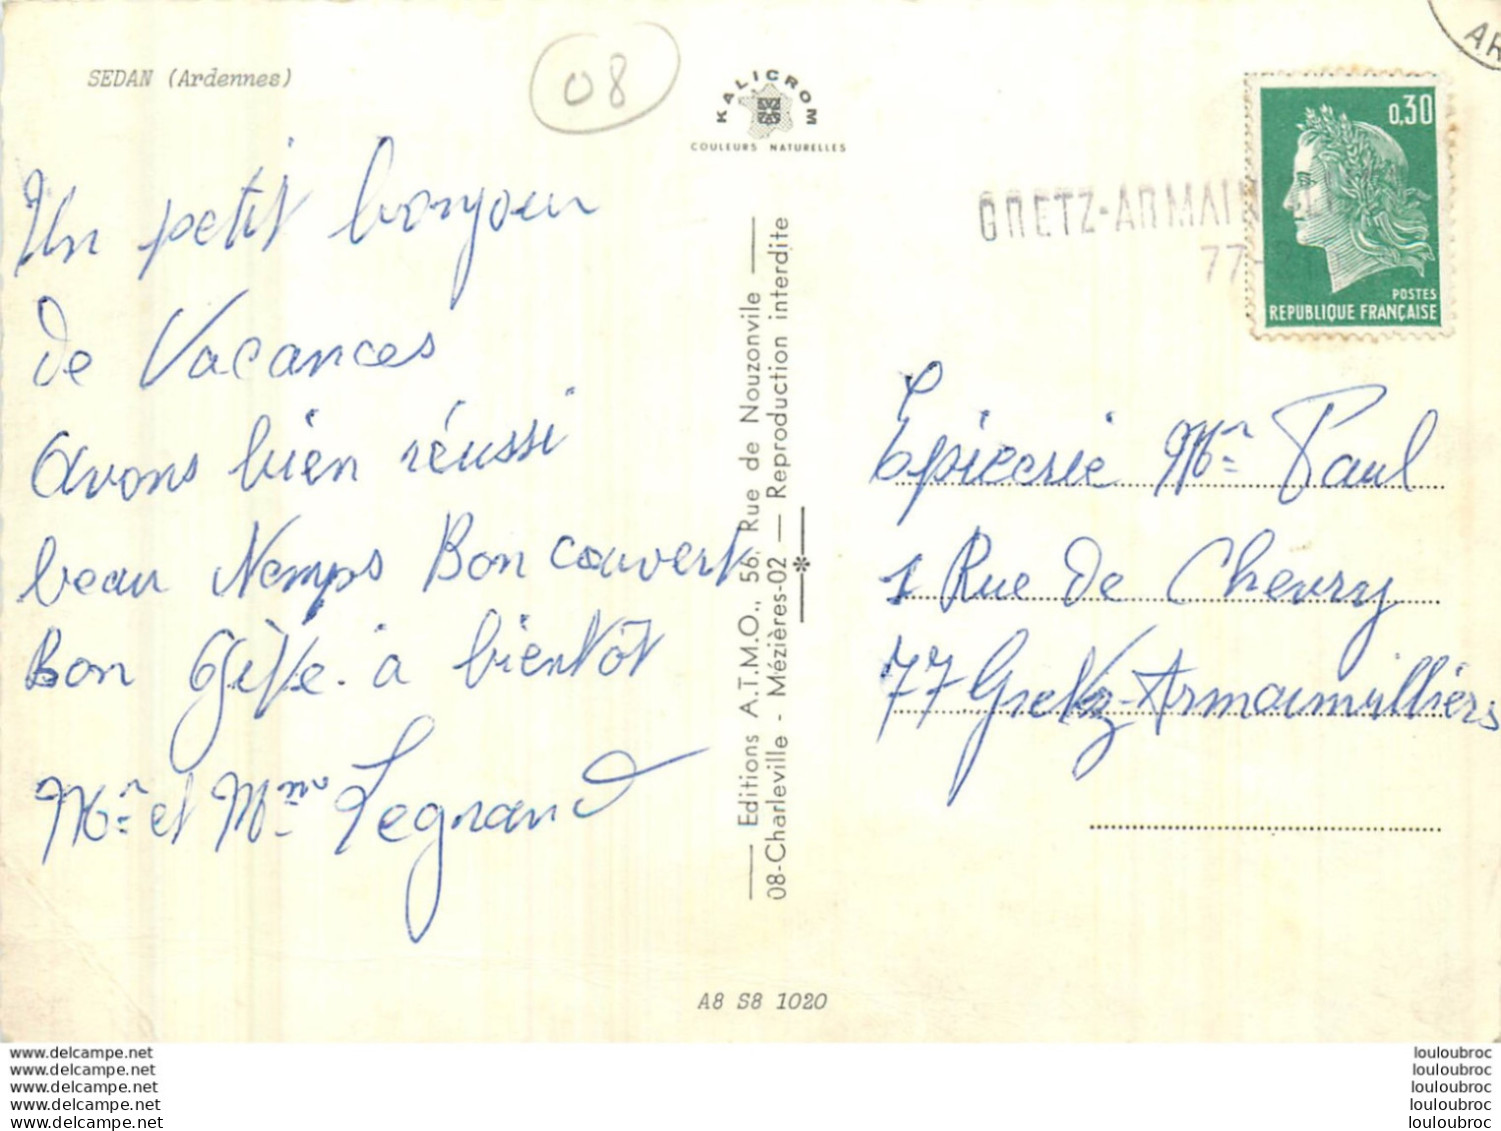 SEDAN (Ardennes)
08
KALICROM
COULEURS NATURELLES
Un petit bonjour
de Vacances
avons bien réussi
beau Temps Bon couvert
Bon Gîte. a bientôt
Mr et Mme Legrand
Editions A.T.M.O., 56, Rue de Nouzonvile
08-Charleville - Mézières-02 — Reproduction interdite
A8 S8 1020
AR
0,30
POSTES
REPUBLIQUE FRANÇAISE
GRETZ-ARMAI
77-
Epicerie Mr Paul
1 Rue de Chevry
77 Gretz-Armainvilliers
www.delcampe.net
www.delcampe.net
www.delcampe.net
www.delcampe.net
www.delcampe.net
louloubroc
louloubroc
louloubroc
louloubroc
louloubroc